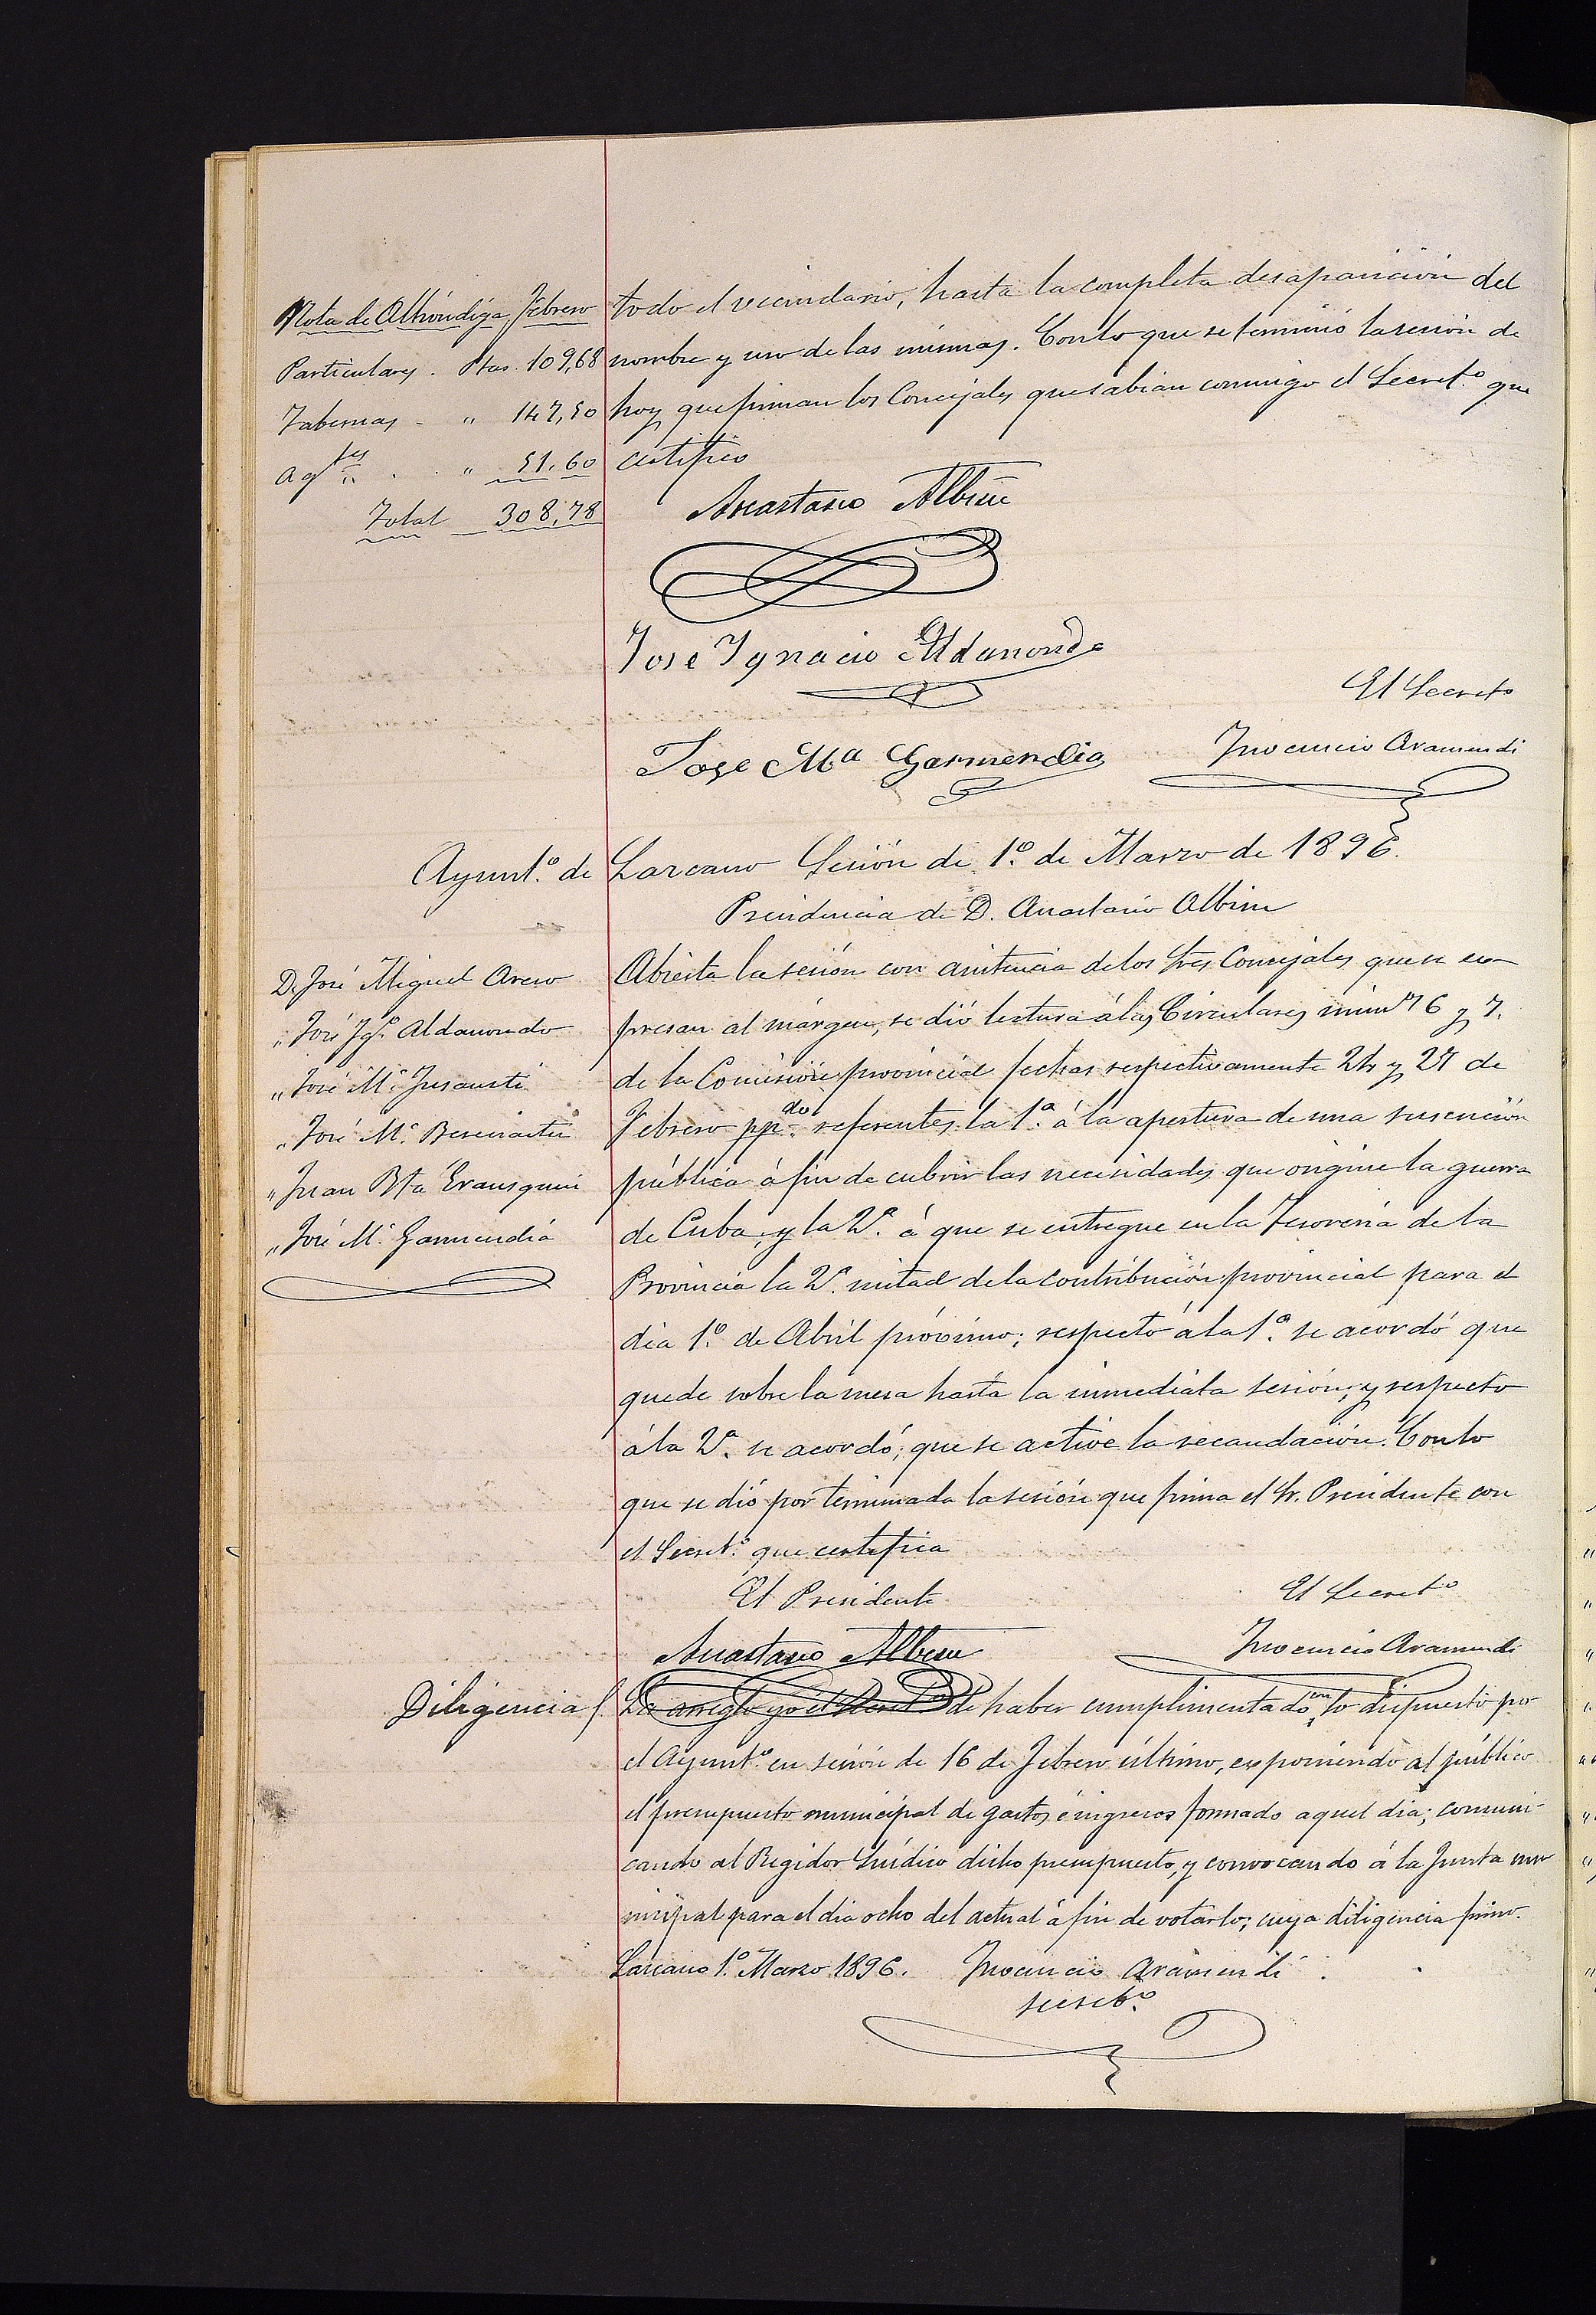 Nota de Alhóndiga Febrero
Particulares . Ptas. 109,68
Tabernas . " 147,50
agtes . " 51.60
Total 308,78
todo el vecindario, hasta la completa desaparición del
nombre y uso de las mismas. Con lo que se terminó la sesión de
hoy que firman los Concejales que sabian conmigo el Secretº que
certifico
Anastasio Albisu
Jose Ygnacio Aldanondo
El Secretº
Jose Mª Garmendia
Inocencio Aramendi
Ayuntº de Lazcano Sesión de 1º de Marzo de 1896.
Presidencia de D. Anastasio Albisu
D. José Miguel
" José Ygº Aldanondo
" José Mª
" José Mª
" Juan Bta Erausquin
" José Mª Garmendia
Abierta la sesión con asistencia de los Sres Concejales que se es-
presan al márgen, se dió lectura á las Circulares núms 6 y 7.
de la Comisión provincial fechas respectivamente 24 y 27 de
Febrero ppdo referentes la 1ª á la apertura de una suscrición
pública á fin de cubrir las necesidades que origine la guerra
de Cuba, y la 2ª á que se entregue en la Tesoreria de la
Provincia la 2ª mitad de la contribución provincial para el
dia 1º de Abril próximo; respecto á la 1ª se acordó que
quede sobre la mesa hasta la inmediata sesión; y respecto
á la 2ª se acordó; que se active la recaudación. Con lo
que se dió por terminada la sesión que firma el Sr. Presidente con
el Secretº que certifica
El Presidente
El Secretº
Anastasio Albisu
Inocencio Aramendi
Diligencia de haber cumplimentado con lo dispuesto por
el Ayuntº en sesión de 16 de Febrero último, esponiendo al público
el presupuesto municipal de gastos é ingresos formado aquel dia; comuni-
cando al Regidor Sindico dicho presupuesto, y convocando á la Junta mu-
nicipal para el dia ocho del actual á fin de votarlo; cuya diligencia firmo.
Lazcano 1º Marzo 1896. Inocencio Aramendi
secretº